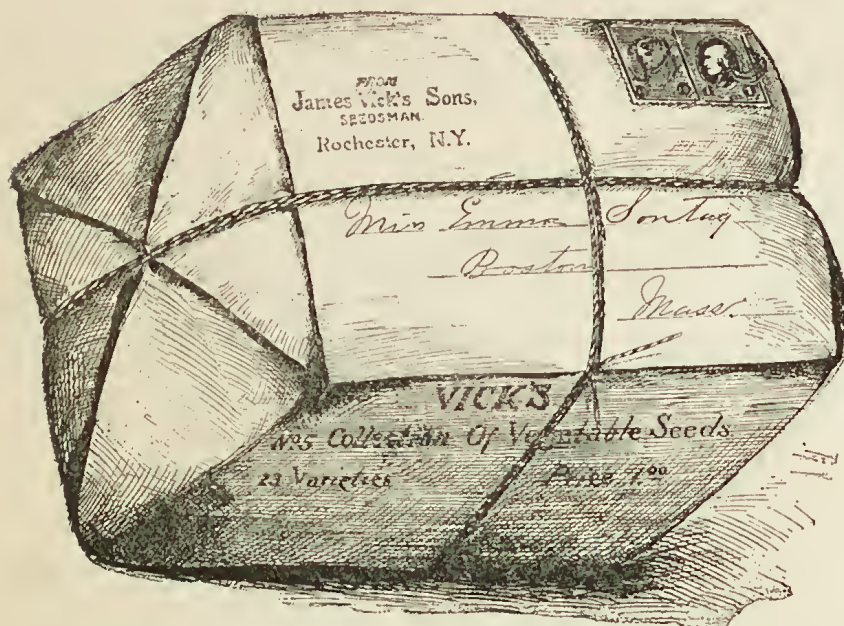 FROM
James Vick's Sons,
SEEDSMAN.
Rochester, N.Y.
Miss Emma Sontag
Boston
Mass.
VICK'S
No5 Collection Of Vegetable Seeds
23 Varieties Price 1.00